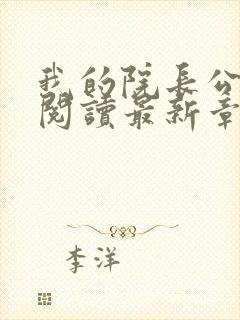 我的院長公
閱讀最新章
李洋